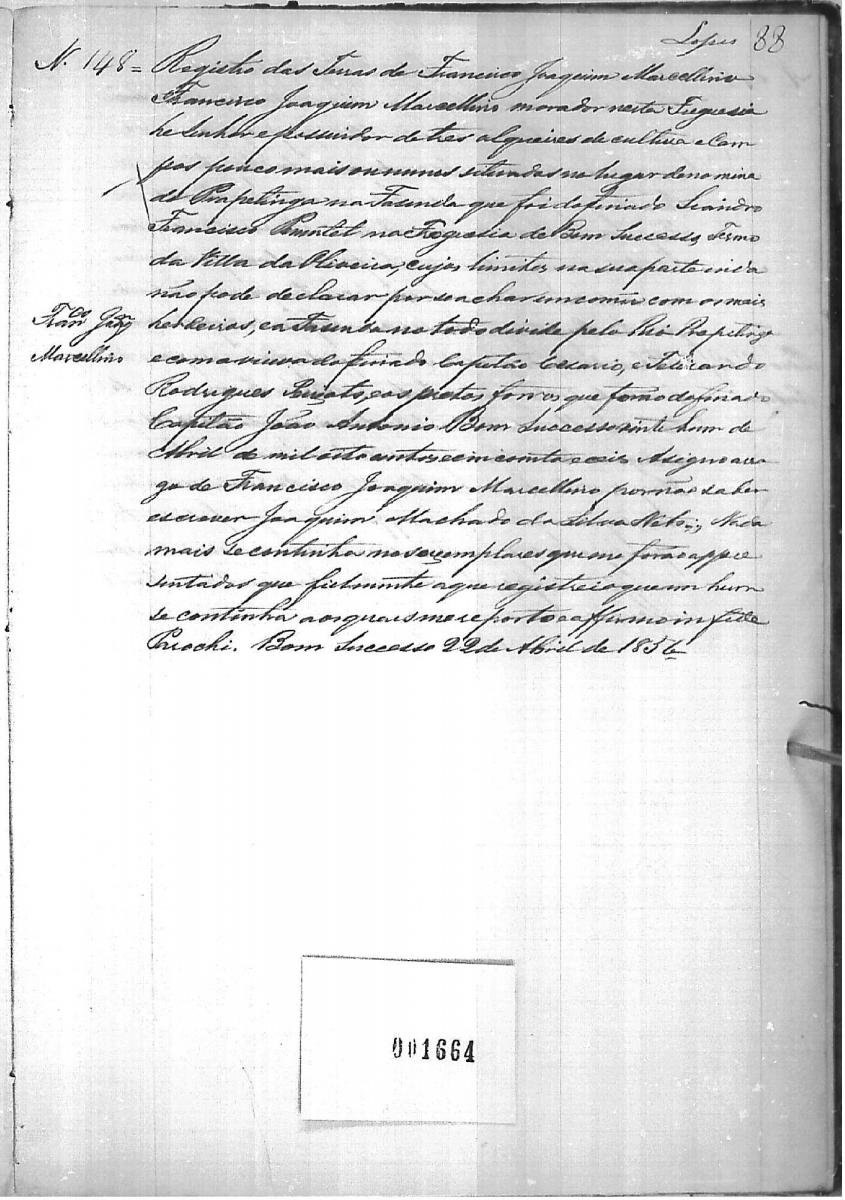 Lopes 88
N. 148 = Registro das Terras de Francisco Joaquim Marcellino
Francisco Joaquim Marcellino morador nesta Freguesia
he Senhor e possuidor de tres alqueires de cultura e Cam
pos pouco mais ou menos situadas no lugar denomina
do Pirapetinga na Fasenda que foi do finado Leandro
Francisco na Freguesia de Bom Successo, Termo
da Villa da Oliveira, cujos limites na sua parte inda
não pode declarar por se achar em comũ com os mais
herdeiros, e a Fasenda no todo divide pelo Rio Pirapitinga
e com a viuva do finado Capitão Cesario, e Felizardo
Rodrigues e os pretos forros que forão do finado
Capitão João Antonio Bom Successo vinte hum de
Abril de mil oito centos e cincoenta e ceis Asigno a ro
go de Francisco Joaquim Marcellino por não saber
escrever Joaquim Machado da Silva Neto,, Nada
mais se continha nos exemplares que me forão appre
sentados que fielmente aque registrei o que em hum
se continha aos quais me reporto e affirmo in fide
Parochi. Bom Successo 22 de Abril de 1856
Fran.co Joaq.m
Marcellino
001664